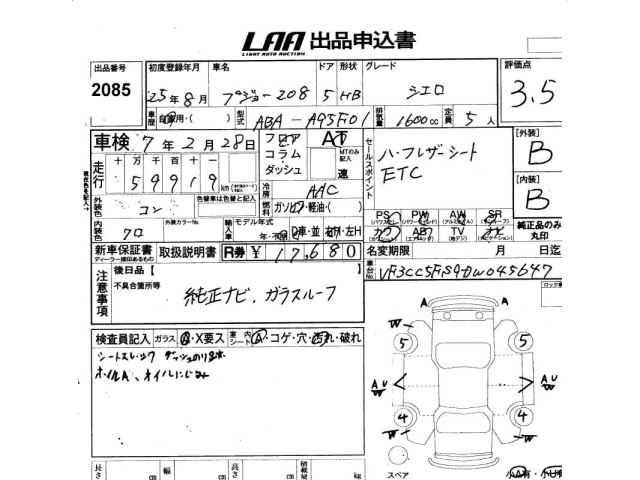 LAA 出品申込書
LIGHT AUTO AUCTION
出品番号 初度登録年月 車名 ドア 形状 グレード 評価点
2085 25年8月 プジョー208 5 HB シエロ 3.5
車歴 自家用・( ) 型式 ABA-A95F01 排気量 1600cc 定員 5人
車検 7年2月28日 フロア AT セールスポイント 【外装】
コラム MTのみ記入 ハーフレザーシート B
走行 十万千百十 59919km ダッシュ 速 ETC 【内装】
外装色 コン 色替車は色替と記入 冷房 AAC B
燃料 ガソリン・軽油・( )
PS PW AW SR
内装色 クロ 外装カラーNo. 輸入車 モデル年式
カワ AB TV ナビ 純正品のみ丸印
新車保証書 取扱説明書 R券 ¥17,680 名変期限 月 日迄
ディーラー捺印あるもの
車台No. VF3CC5FS9DW045647
注意事項 後日品【 】
不具合箇所等 純正ナビ、ガラスルーフ
検査員記入 ガラス A・X要ス 室内シート A・コゲ・穴・汚れ・破れ
ホイルA、オイルにじみ
A A
W W
5 5
AU W AU W
4 4
W W
スペア
長さ cm 幅 cm 高さ cm 積載量 kg 小A有・小キズ